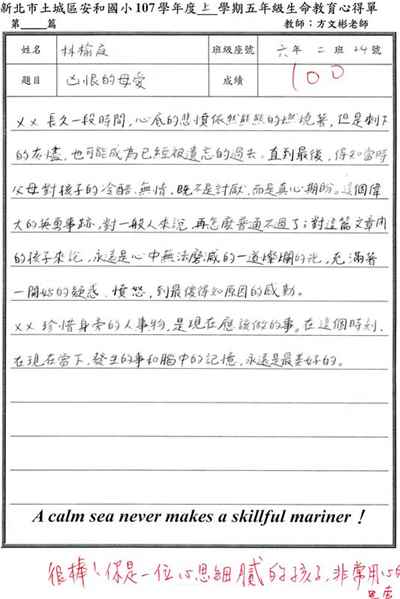 新北市土城區安和國小107學年度上學期五年級生命教育心得單
第____篇 教師：方文彬老師
姓名 林榆庭 班級座號 六年二班24號
題目 凶恨的母愛 成績 100
×× 長久一段時間，心底的悲憤依然熊熊的燃燒著，但是剩下
的灰燼，也可能成為已經被遺忘的過去。直到最後，得知當時
父母對孩子的冷酷、無情，既不是討厭，而是真心期盼。這個偉
大的英勇事跡，對一般人來說，再怎麼普通不過了；對這篇文章內
的孩子來說，永遠是心中無法磨滅的一道燦爛的光，充滿著
一開始的疑惑、憤怒，到最後得知原因的感動。
×× 珍惜身旁的人事物，是現在應該做的事。在這個時刻，
在現在當下，發生的事和腦中的記憶，永遠是最美好的。
A calm sea never makes a skillful mariner！
很棒！你是一位心思細膩的孩子，非常用心